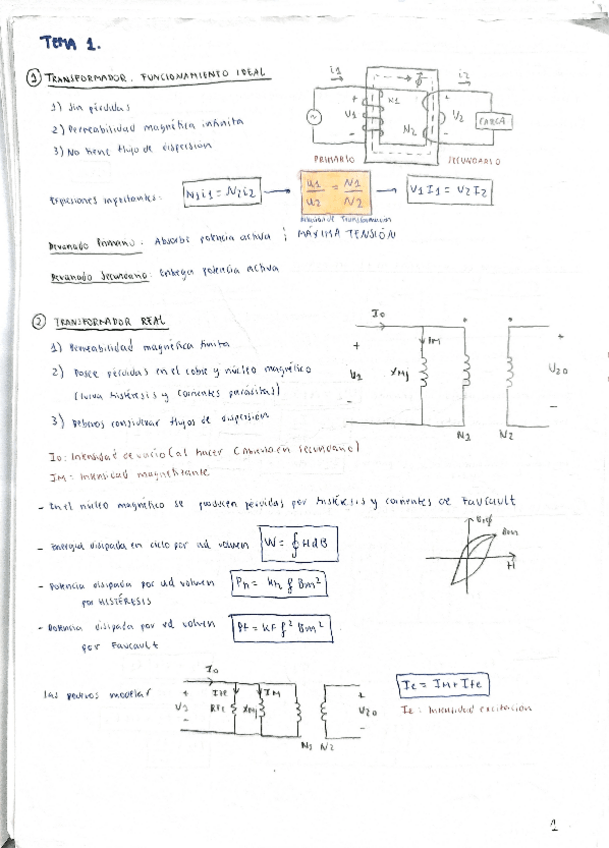 TEMA 1.
① TRANSFORMADOR. FUNCIONAMIENTO IDEAL
1) Sin pérdidas
2) Permeabilidad magnética infinita
3) No tiene flujo de dispersión
i1
ϕ
i2
+
V1
-
N1
N2
+
V2
-
CARGA
PRIMARIO
SECUNDARIO
Expresiones importantes:
N1i1 = N2i2
u1/u2 = N1/N2
V1I1 = V2I2
RELACIÓN DE TRANSFORMACIÓN
Devanado Primario: Absorbe potencia activa ; MÁXIMA TENSIÓN
Devanado Secundario: Entrega potencia activa
② TRANSFORMADOR REAL
1) Permeabilidad magnética finita
2) Posee pérdidas en el cobre y núcleo magnético
(curva histéresis y corrientes parásitas)
3) Debemos considerar flujos de dispersión
I0
IM
+
U1
-
XM
+
U20
-
N1
N2
I0: Intensidad de vacío (al hacer en secundario)
IM: Intensidad magnetizante
- En el núcleo magnético se producen pérdidas por histéresis y corrientes de Faucault
- Energía disipada en ciclo por ud volumen
W = ∮HdB
Bm
H
- Potencia disipada por ud volumen
por HISTÉRESIS
Ph = kh f Bm²
- Potencia disipada por ud volumen
por Faucault
Pf = KF f² Bm²
I0
Las pedemos modelar
+
V1
-
Ife
Rfe
IM
+
V20
-
N1 N2
Ie = IM + Ife
Ie: Intensidad excitación
1